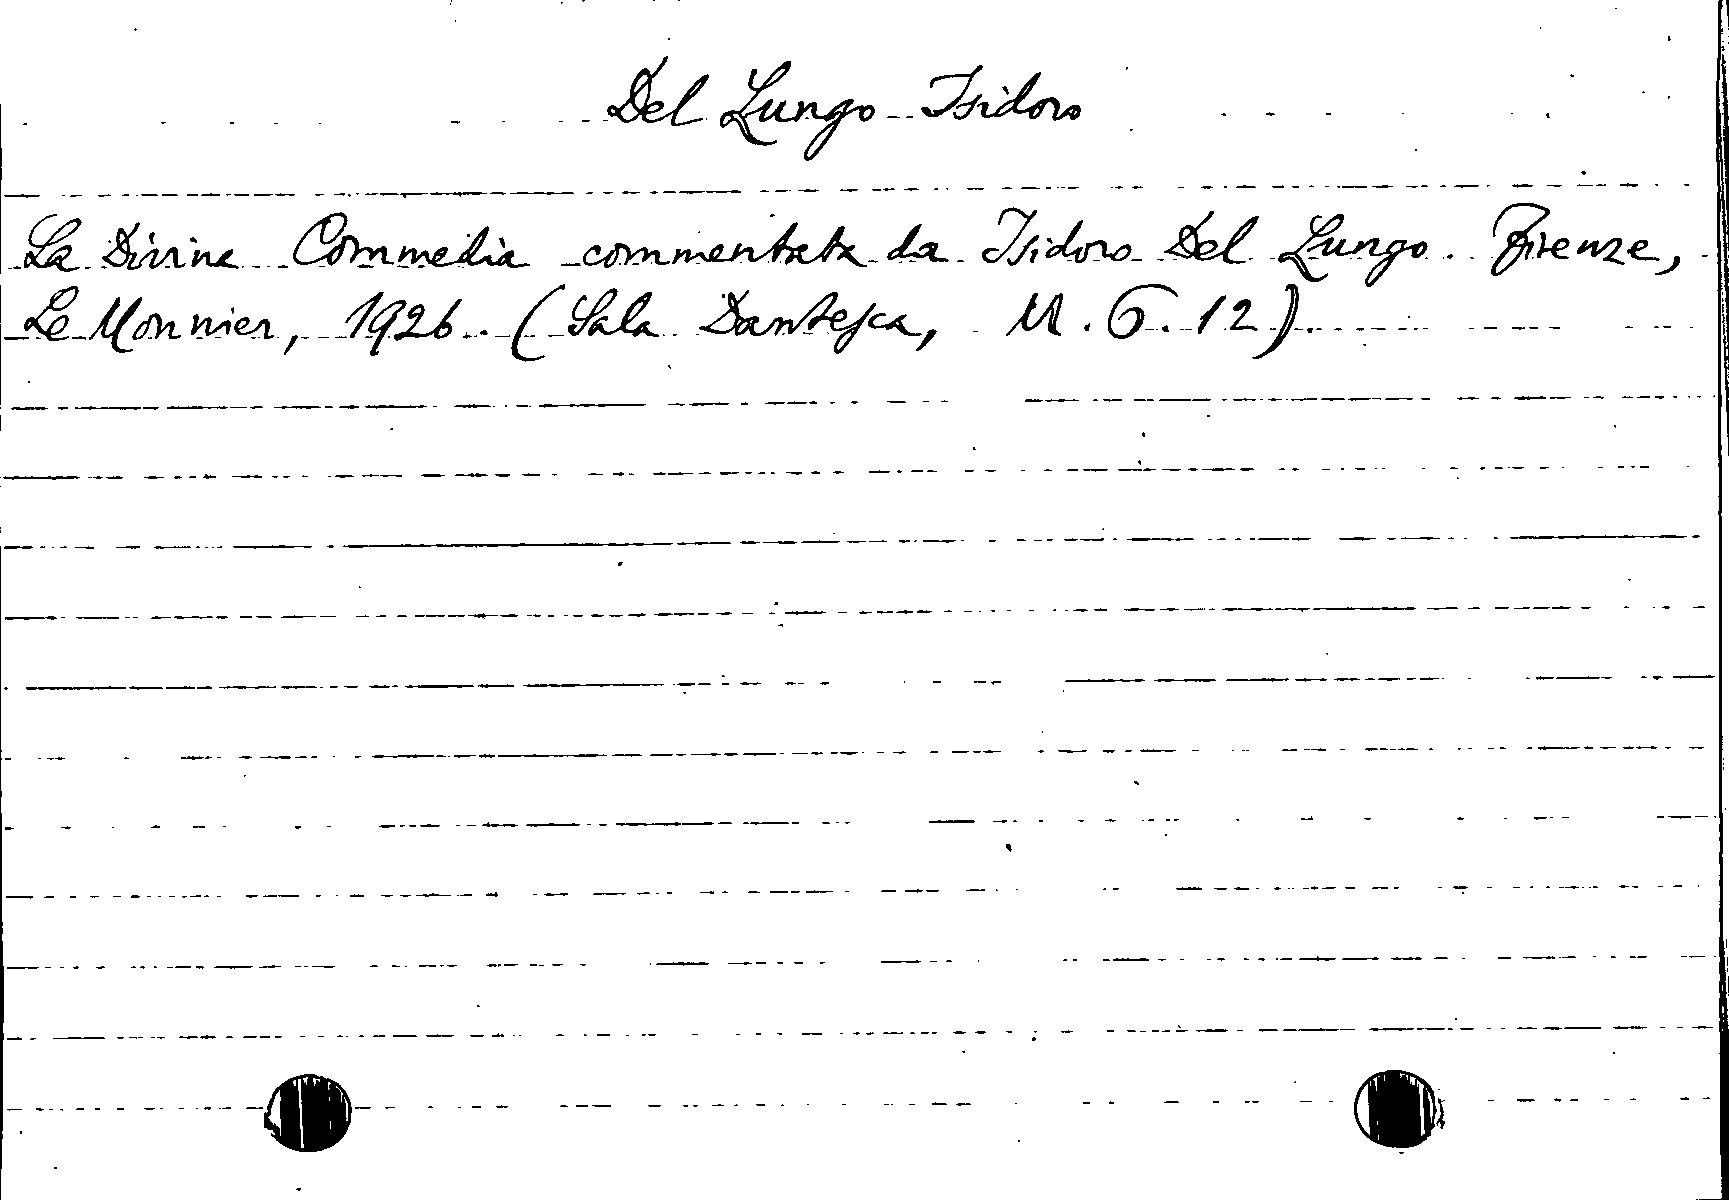 Del Lungo Isidoro
La Divina Commedia commentata da Isidoro Del Lungo. Firenze,
Le Monnier, 1926. (Sala Dantesca, M. G. 12)